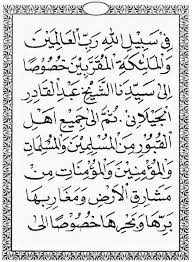 فِى سَبِيْلِ اللهِ رَبِّ الْعَالَمِيْنَ
وَالْمَلَائِكَةِ الْمُقَرَّبِيْنَ خُصُوْصًا
اِلَى سَيِّدِنَا الشَّيْخِ عَبْدِ الْقَادِرِ
الْجَيْلَانِى. ثُمَّ اِلَى جَمِيْعِ اَهْلِ
الْقُبُوْرِ مِنَ الْمُسْلِمِيْنَ وَالْمُسْلِمَاتِ
وَالْمُؤْمِنِيْنَ وَالْمُؤْمِنَاتِ مِنْ
مَشَارِقِ الْاَرْضِ وَمَغَارِبِهَا
بَرِّهَا وَبَحْرِهَا خُصُوْصًا اِلَى